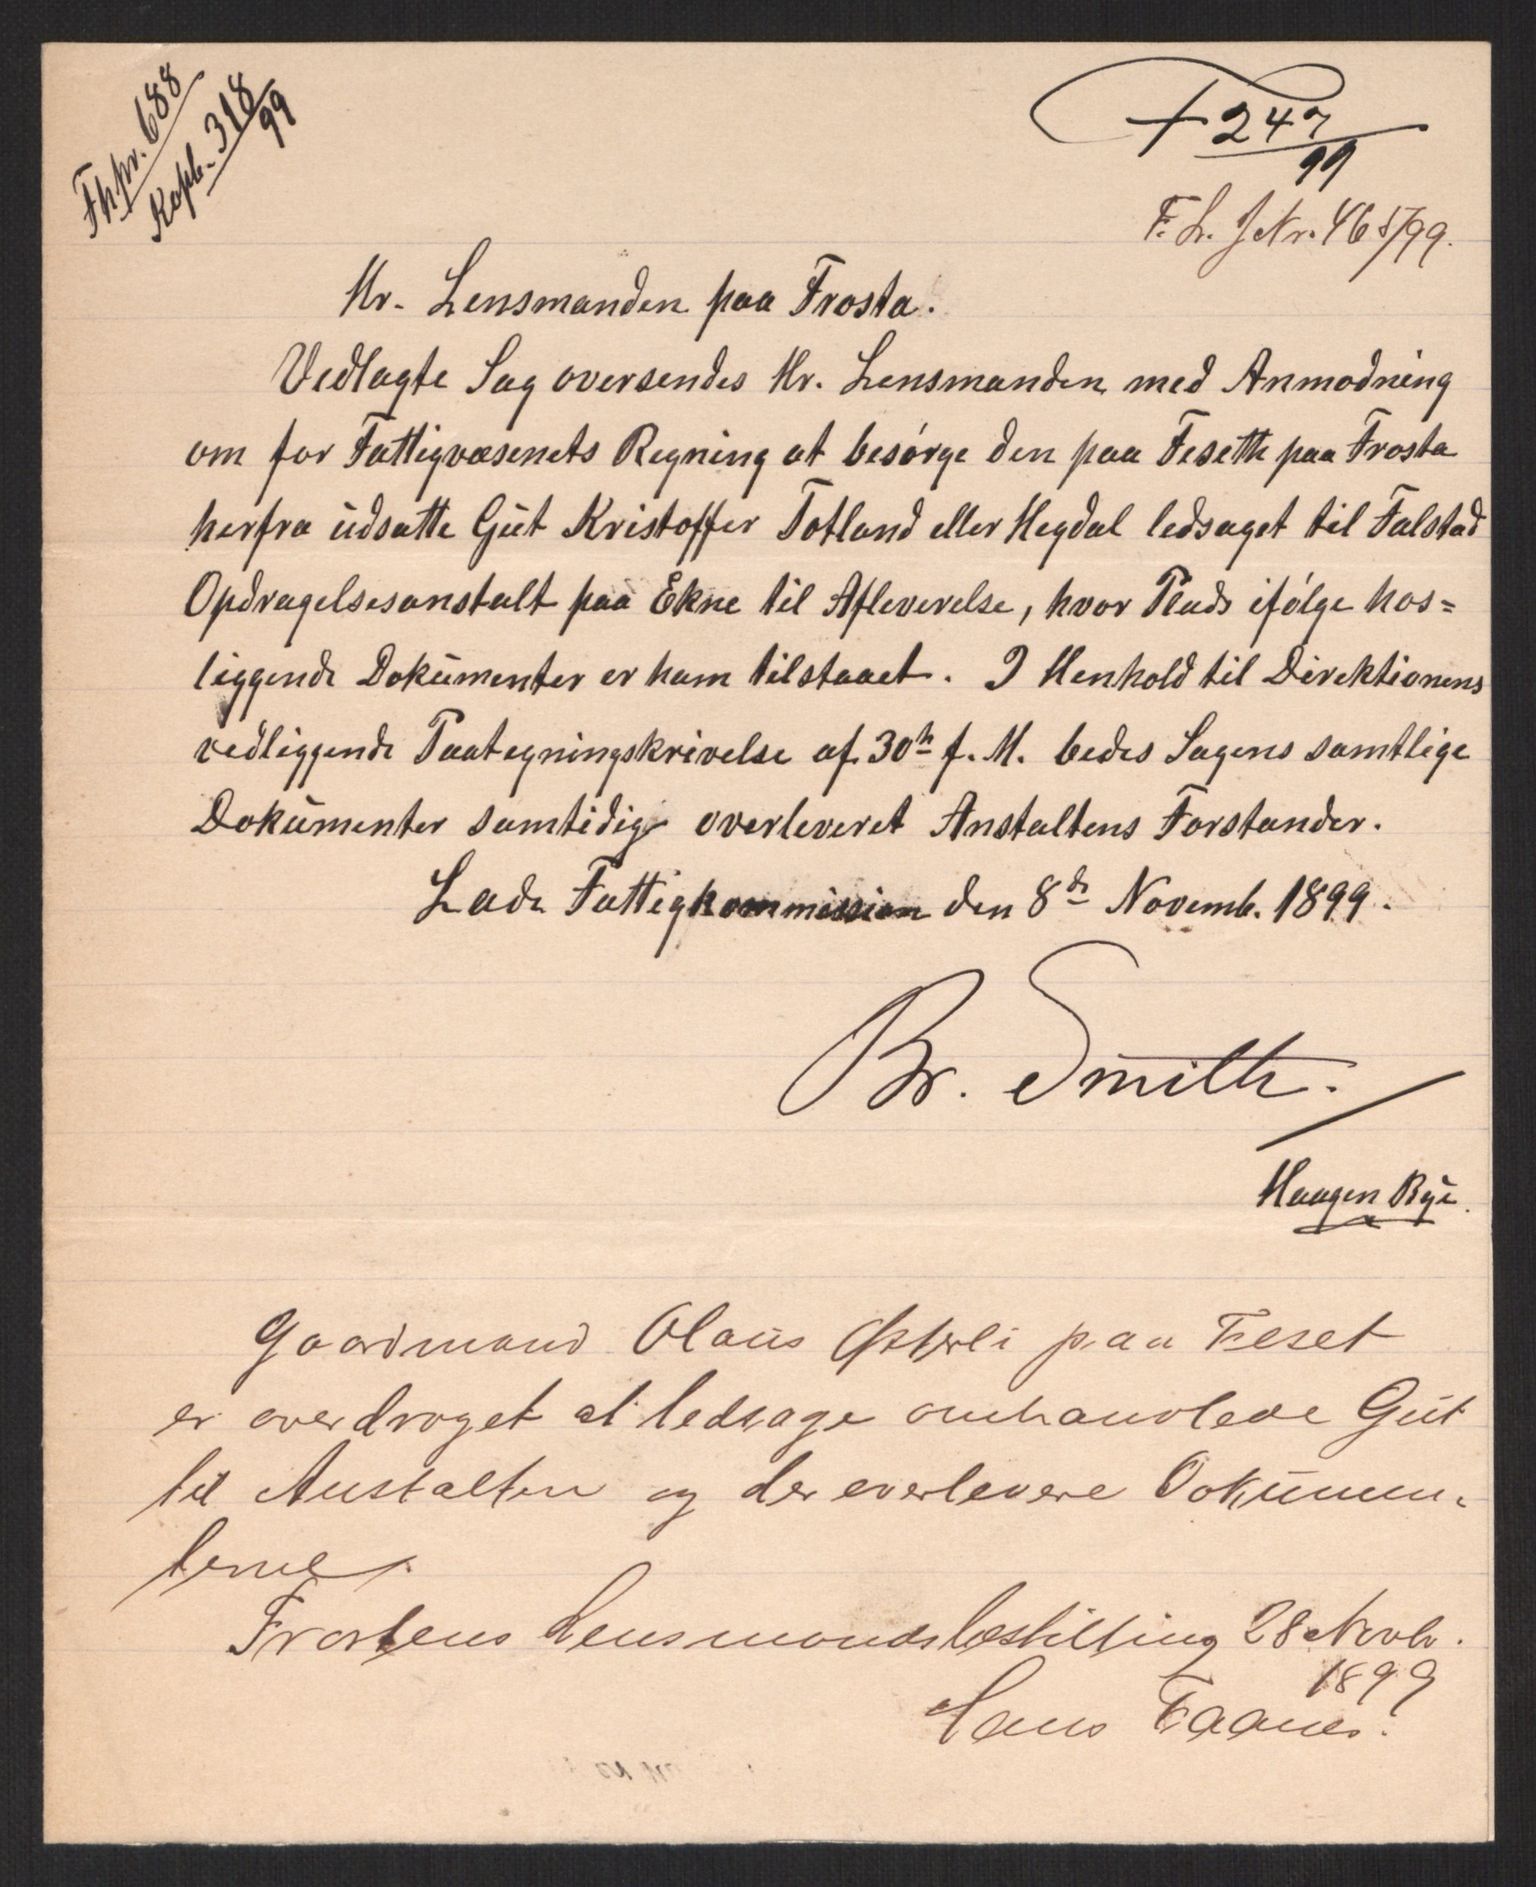 Fhpr. 688
Kopb. 318/99
F 247/99
F. L. J Nr. 465/99.
Hr. Lensmanden paa Frosta.
Vedlagte Sag oversendes Hr. Lensmanden med Anmodning
om for Fattigvæsenets Regning at besørge den paa Fesetth paa Frosta
herfra udsatte Gut Kristoffer Totland eller Hegdal ledsaget til Falstad
Opdragelsesanstalt paa Ekne til Afleverelse, hvor Plads ifølge hos=
liggende Dokumenter er ham tilstaaet. I Henhold til Direktionens
vedliggende Paategningskrivelse af 30h f. M. bedes Sagens samtlige
Dokumenter samtidig overleveret Anstaltens Forstander.
Lade Fattigkommission den 8de Novemb. 1899.
Br. Smith.
Haagen Bye.
Gaardmand Olaus Østerli paa Feset
er overdraget at ledsage omhandlede Gut
til Anstalten og der overlevere Dokumen-
terne.
Frostens Lensmandsbestilling 28 Novbr.
1899
Hans Faanes.